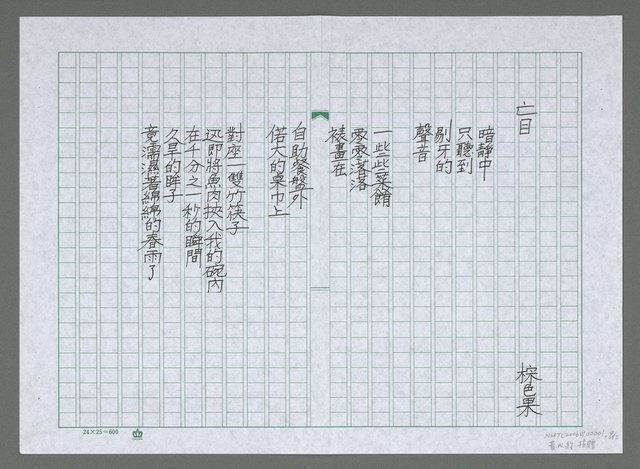 亡目
棕色果
暗靜中
只聽到
剔牙的
聲音
一些些菜餚
零零落落
裱畫在
自助餐盤外
偌大的桌巾上
對座一雙竹筷子
迅即將魚肉挾入我的碗內
在千分之一秒的瞬間
久旱的眸子
竟濡濕著綿綿的春雨了
24×25=600